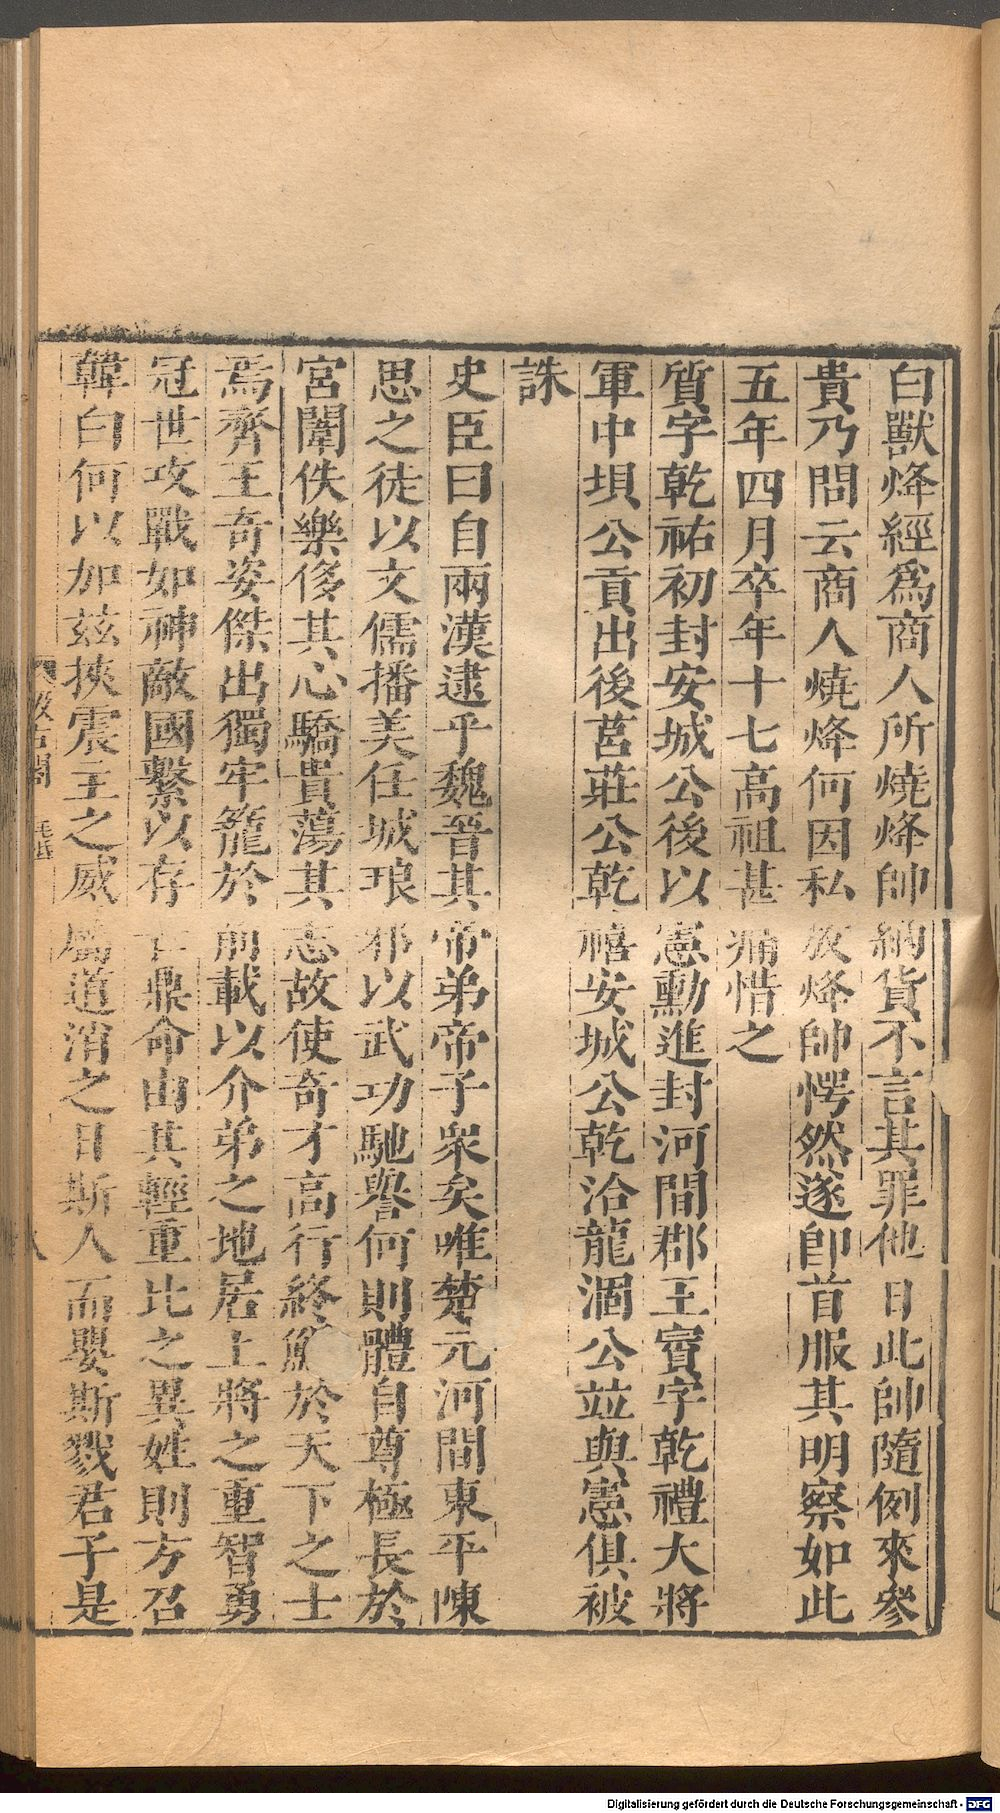 白獸烽經爲商人所燒烽帥納貨不言其罪他日此帥隨例來參
貴乃問云商人燒烽何因私放烽帥愕然遂即首服其明察如此
五年四月卒年十七高祖甚痛惜之
質字乾祐初封安城公後以憲勳進封河間郡王賓字乾禮大將
軍中垻公貢出後莒莊公乾禧安城公乾洽龍涸公竝與憲俱被
誅
史臣曰自兩漢逮乎魏晉其帝弟帝子衆矣唯楚元河間東平陳
思之徒以文儒播美任城琅邪以武功馳譽何則體自尊極長於
宮闈佚樂侈其心驕貴蕩其志故使奇才高行終鮮於天下之士
焉齊王奇姿傑出獨牢籠於前載以介弟之地居上將之重智勇
冠世攻戰如神敵國繫以存亡鼎命由其輕重比之異姓則方召
韓白何以加茲挾震主之威屬道消之日斯人而嬰斯戮君子是
汲古閣
毛氏
八
Digitalisierung gefördert durch die Deutsche Forschungsgemeinschaft - DFG